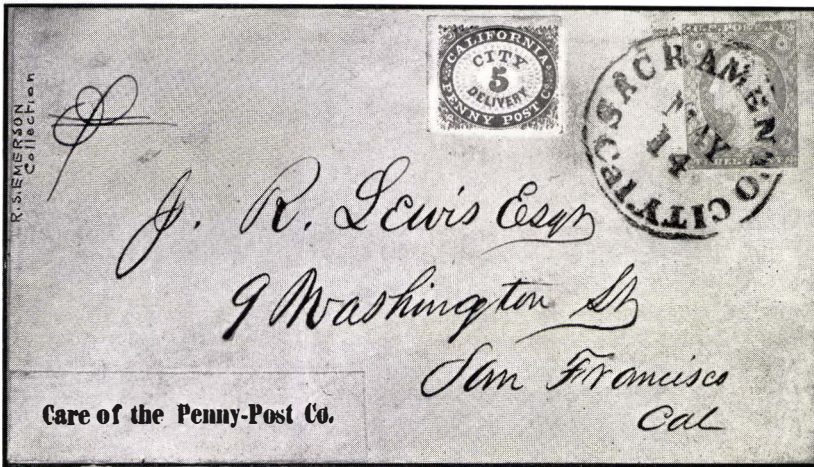 R.S. EMERSON
Collection
CALIFORNIA
CITY
5
DELIVERY
PENNY POST CO.
SACRAMENTO CITY CAL
MAY
14
J. R. Lewis Esqr
9 Washington St
San Francisco
Cal
Care of the Penny-Post Co.